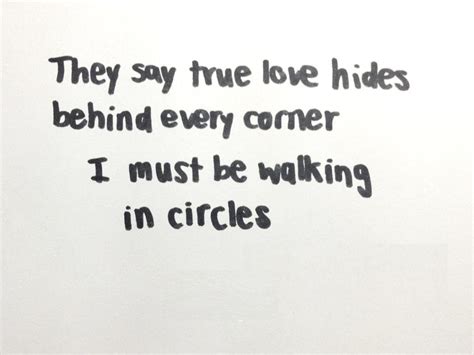 They say true love hides
behind every corner
I must be walking
in circles